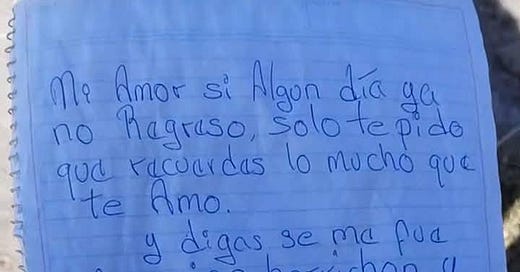 Mi Amor si Algun día ya
no Ragraso, solo te pido
qua racuardas lo mucho qua
te Amo.
y digas se ma fua